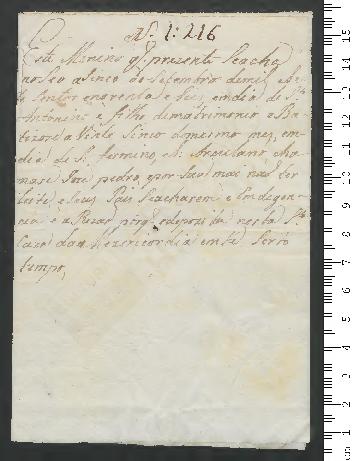 N. 1:216
Este Menino q. prezente Seacha
nasceo a Sinco de Setembro demil e Se
te Sentos e noventa e Seis, em dia de S.
Antonino e filho de matrimonio e Ba
tizado a Vinte Sinco do mesmo mez, em
dia de S. fermino, e S. Arculano, cha
mase Joze pedro, e por Sua mai nao ter
leite e Seus Pais Seacharem
e a Rezao porq. nesta S.
Caza daa Mezericordia emte Serto
tempo,